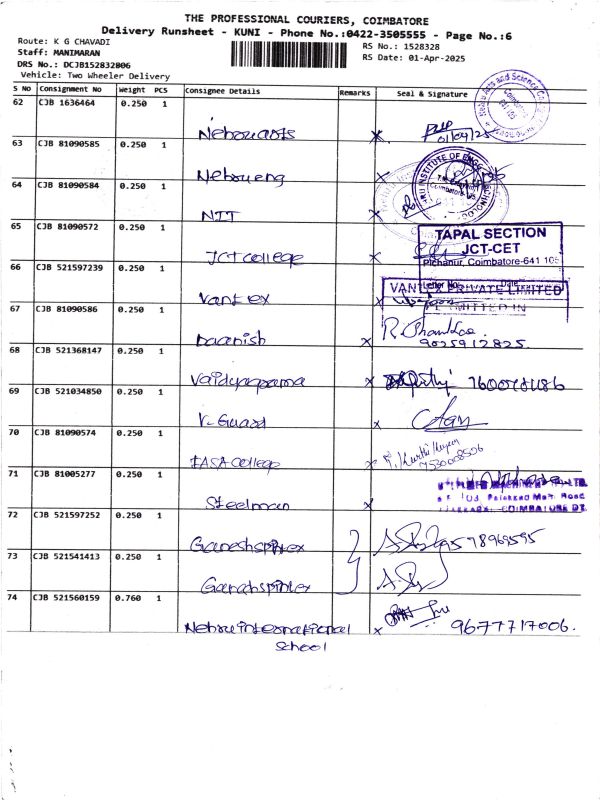 THE PROFESSIONAL COURIERS, COIMBATORE
Delivery Runsheet - KUNI - Phone No.:0422-3505555 - Page No.:6
Route: K G CHAVADI
RS No.: 1528328
Staff: MANIMARAN
RS Date: 01-Apr-2025
DRS No.: DCJB152832806
Vehicle: Two Wheeler Delivery
S No Consignment No Weight PCS Consignee Details Remarks Seal & Signature
62 CJB 1636464 0.250 1
Nehru arts x 01/04/25
63 CJB 81090585 0.250 1
Nehru eng x
64 CJB 81090584 0.250 1
NIT x
65 CJB 81090572 0.250 1
JCT college x
TAPAL SECTION
JCT-CET
Pichanur, Coimbatore-641 105
Letter No. Date
66 CJB 521597239 0.250 1
Vantex x
VANTEX PRIVATE LIMITED
67 CJB 81090586 0.250 1
Daanish x 9025912825
68 CJB 521368147 0.250 1
Vaidyagrama x
69 CJB 521034850 0.250 1
V-Guard x
70 CJB 81090574 0.250 1
IASA College x 7530008506
71 CJB 81005277 0.250 1
Steelman x
Palakkad Main Road
COIMBATORE DT.
72 CJB 521597252 0.250 1
Ganeshspintex
73 CJB 521541413 0.250 1
Ganahspintex
74 CJB 521560159 0.760 1
Nehru international x 9677717006.
School